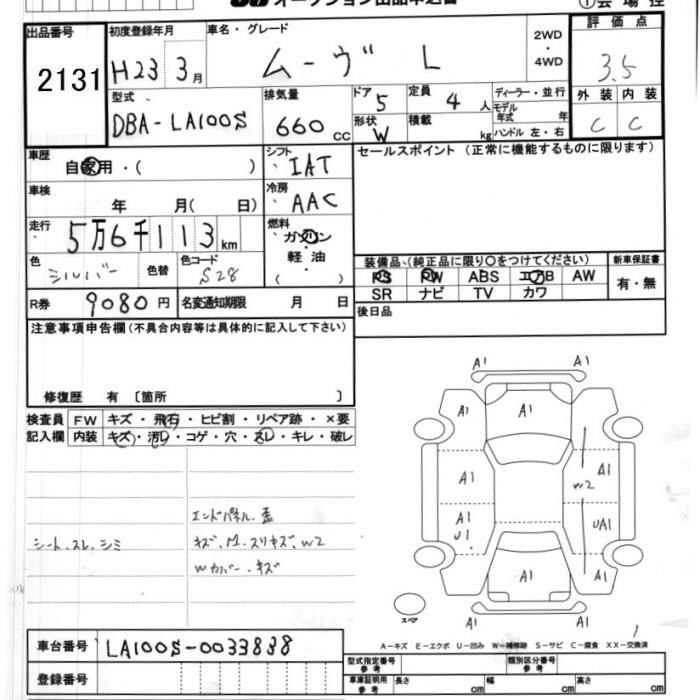 出品番号 2131
初度登録年月 H23 3月
車名・グレード ムーヴ L
2WD・4WD
評価点 3.5
型式 DBA-LA100S
排気量 660 cc
ドア 5
形状 W
定員 4 人
積載 kg
ディーラー・並行
モデル年式 年
ハンドル 左・右
外装 C
内装 C
車歴 自家用・( )
シフト IAT
セールスポイント (正常に機能するものに限ります)
車検 年 月( 日)
冷房 AAC
走行 5万6千113km
燃料 ガソリン・軽油 ( )
色 シルバー
色替
色コード S28
装備品、(純正品に限り○をつけてください)
新車保証書
PS PW ABS エアB AW
SR ナビ TV カワ
有・無
R券 9080円
名変通知期限 月 日
後日品
注意事項申告欄 (不具合内容等は具体的に記入して下さい)
修復歴 有 〔箇所 〕
検査員記入欄
FW キズ・飛石・ヒビ割・リペア跡・×要
内装 キズ・汚レ・コゲ・穴・スレ・キレ・破レ
エンドパネル、歪
シート、スレ、シミ
キズ、M、スリキズ、W2
Wカバー、キズ
A1 A1
A1 A1 A1
A1 W2 A1
A1 U1 UA1
A1 A1
A1 A1
スペア
車台番号 LA100S-0033838
登録番号
A-キズ E-エクボ U-凹み W-補修跡 S-サビ C-腐食 XX-交換済
型式指定番号 参考
類別区分番号 参考
車庫証明用 参考 長さ cm 幅 cm 高さ cm